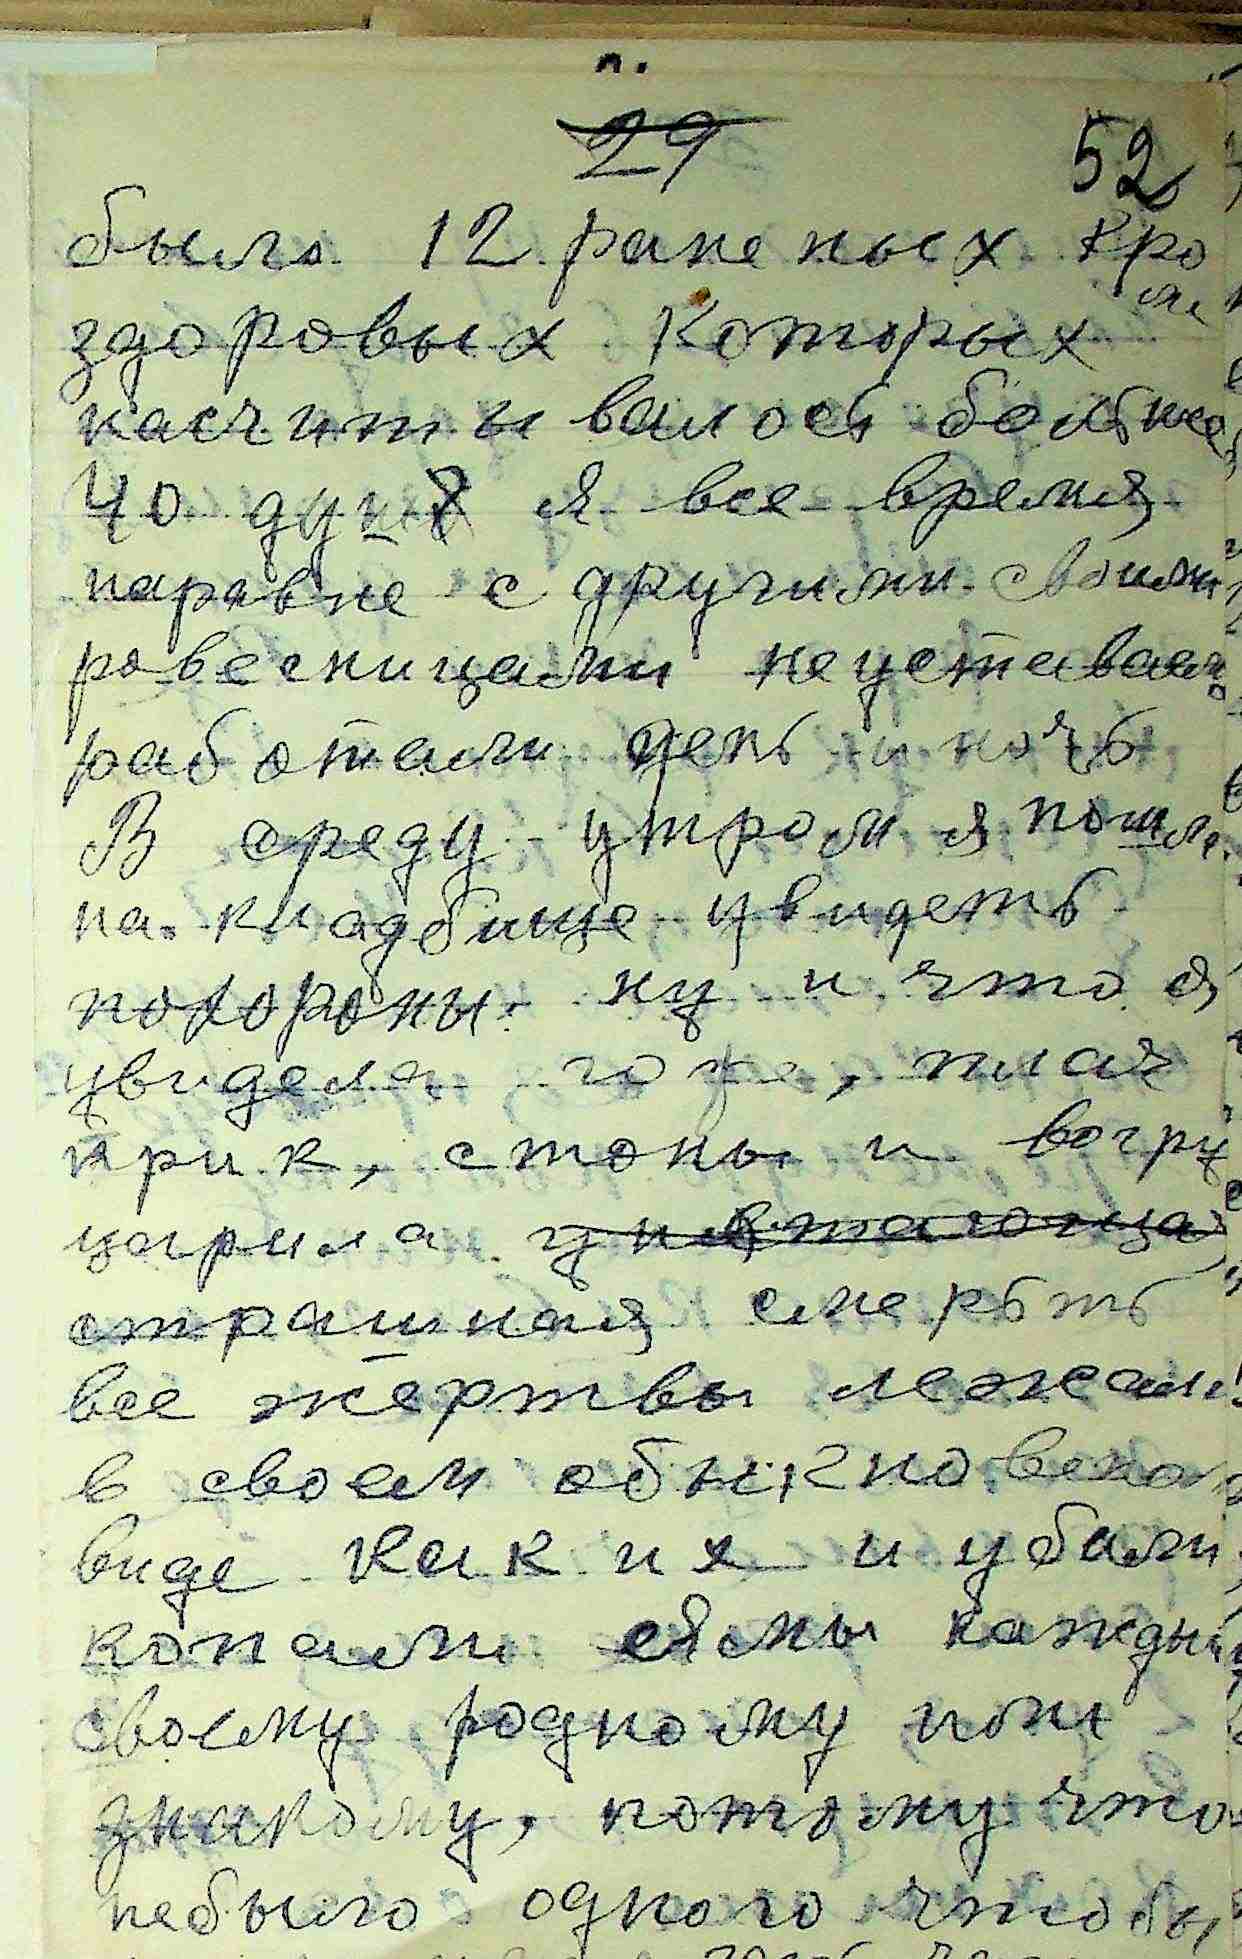 п.
29
52
было 12 раненых кро
ме
здоровых которых
насчитывалось больше
40 душ я все время
наравне с другими своими
ровесницами неуставая
работали день и ночь
В среду утром я пошла
на кладбище увидеть
похороны ну и что я
увидела горе, плач
крик, стоны и вокруг
царила
страшная смерьть
все жертвы лежали
в своем обыкновеном
виде как их и убили
копали ямы каждый
своему родному или
знакому, потому что
небыло одного чтобы